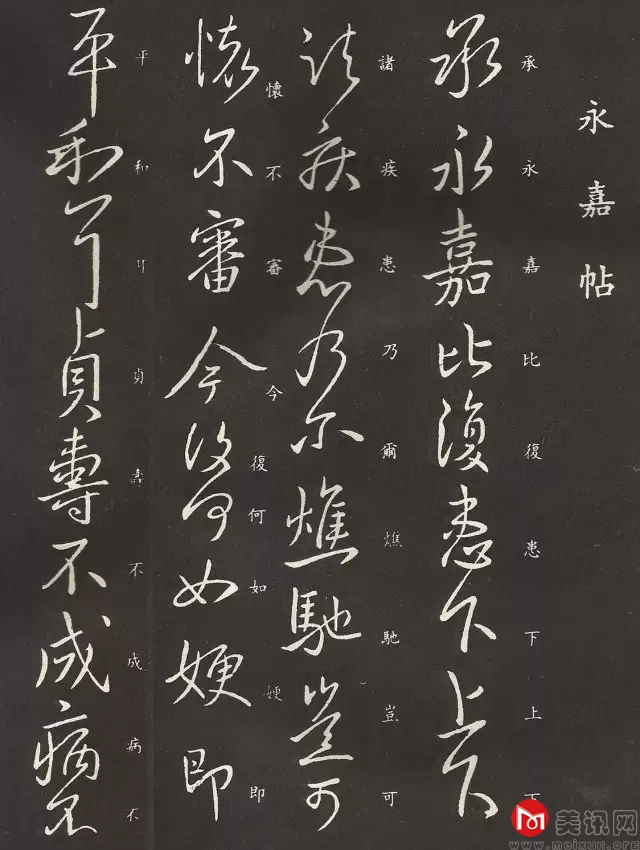 永嘉帖
承永嘉比復患下上下
諸疾患乃爾燋馳豈可
懷不審今復何如㛐即
平和耳貞壽不成病不
美讯网
www.meixun.org